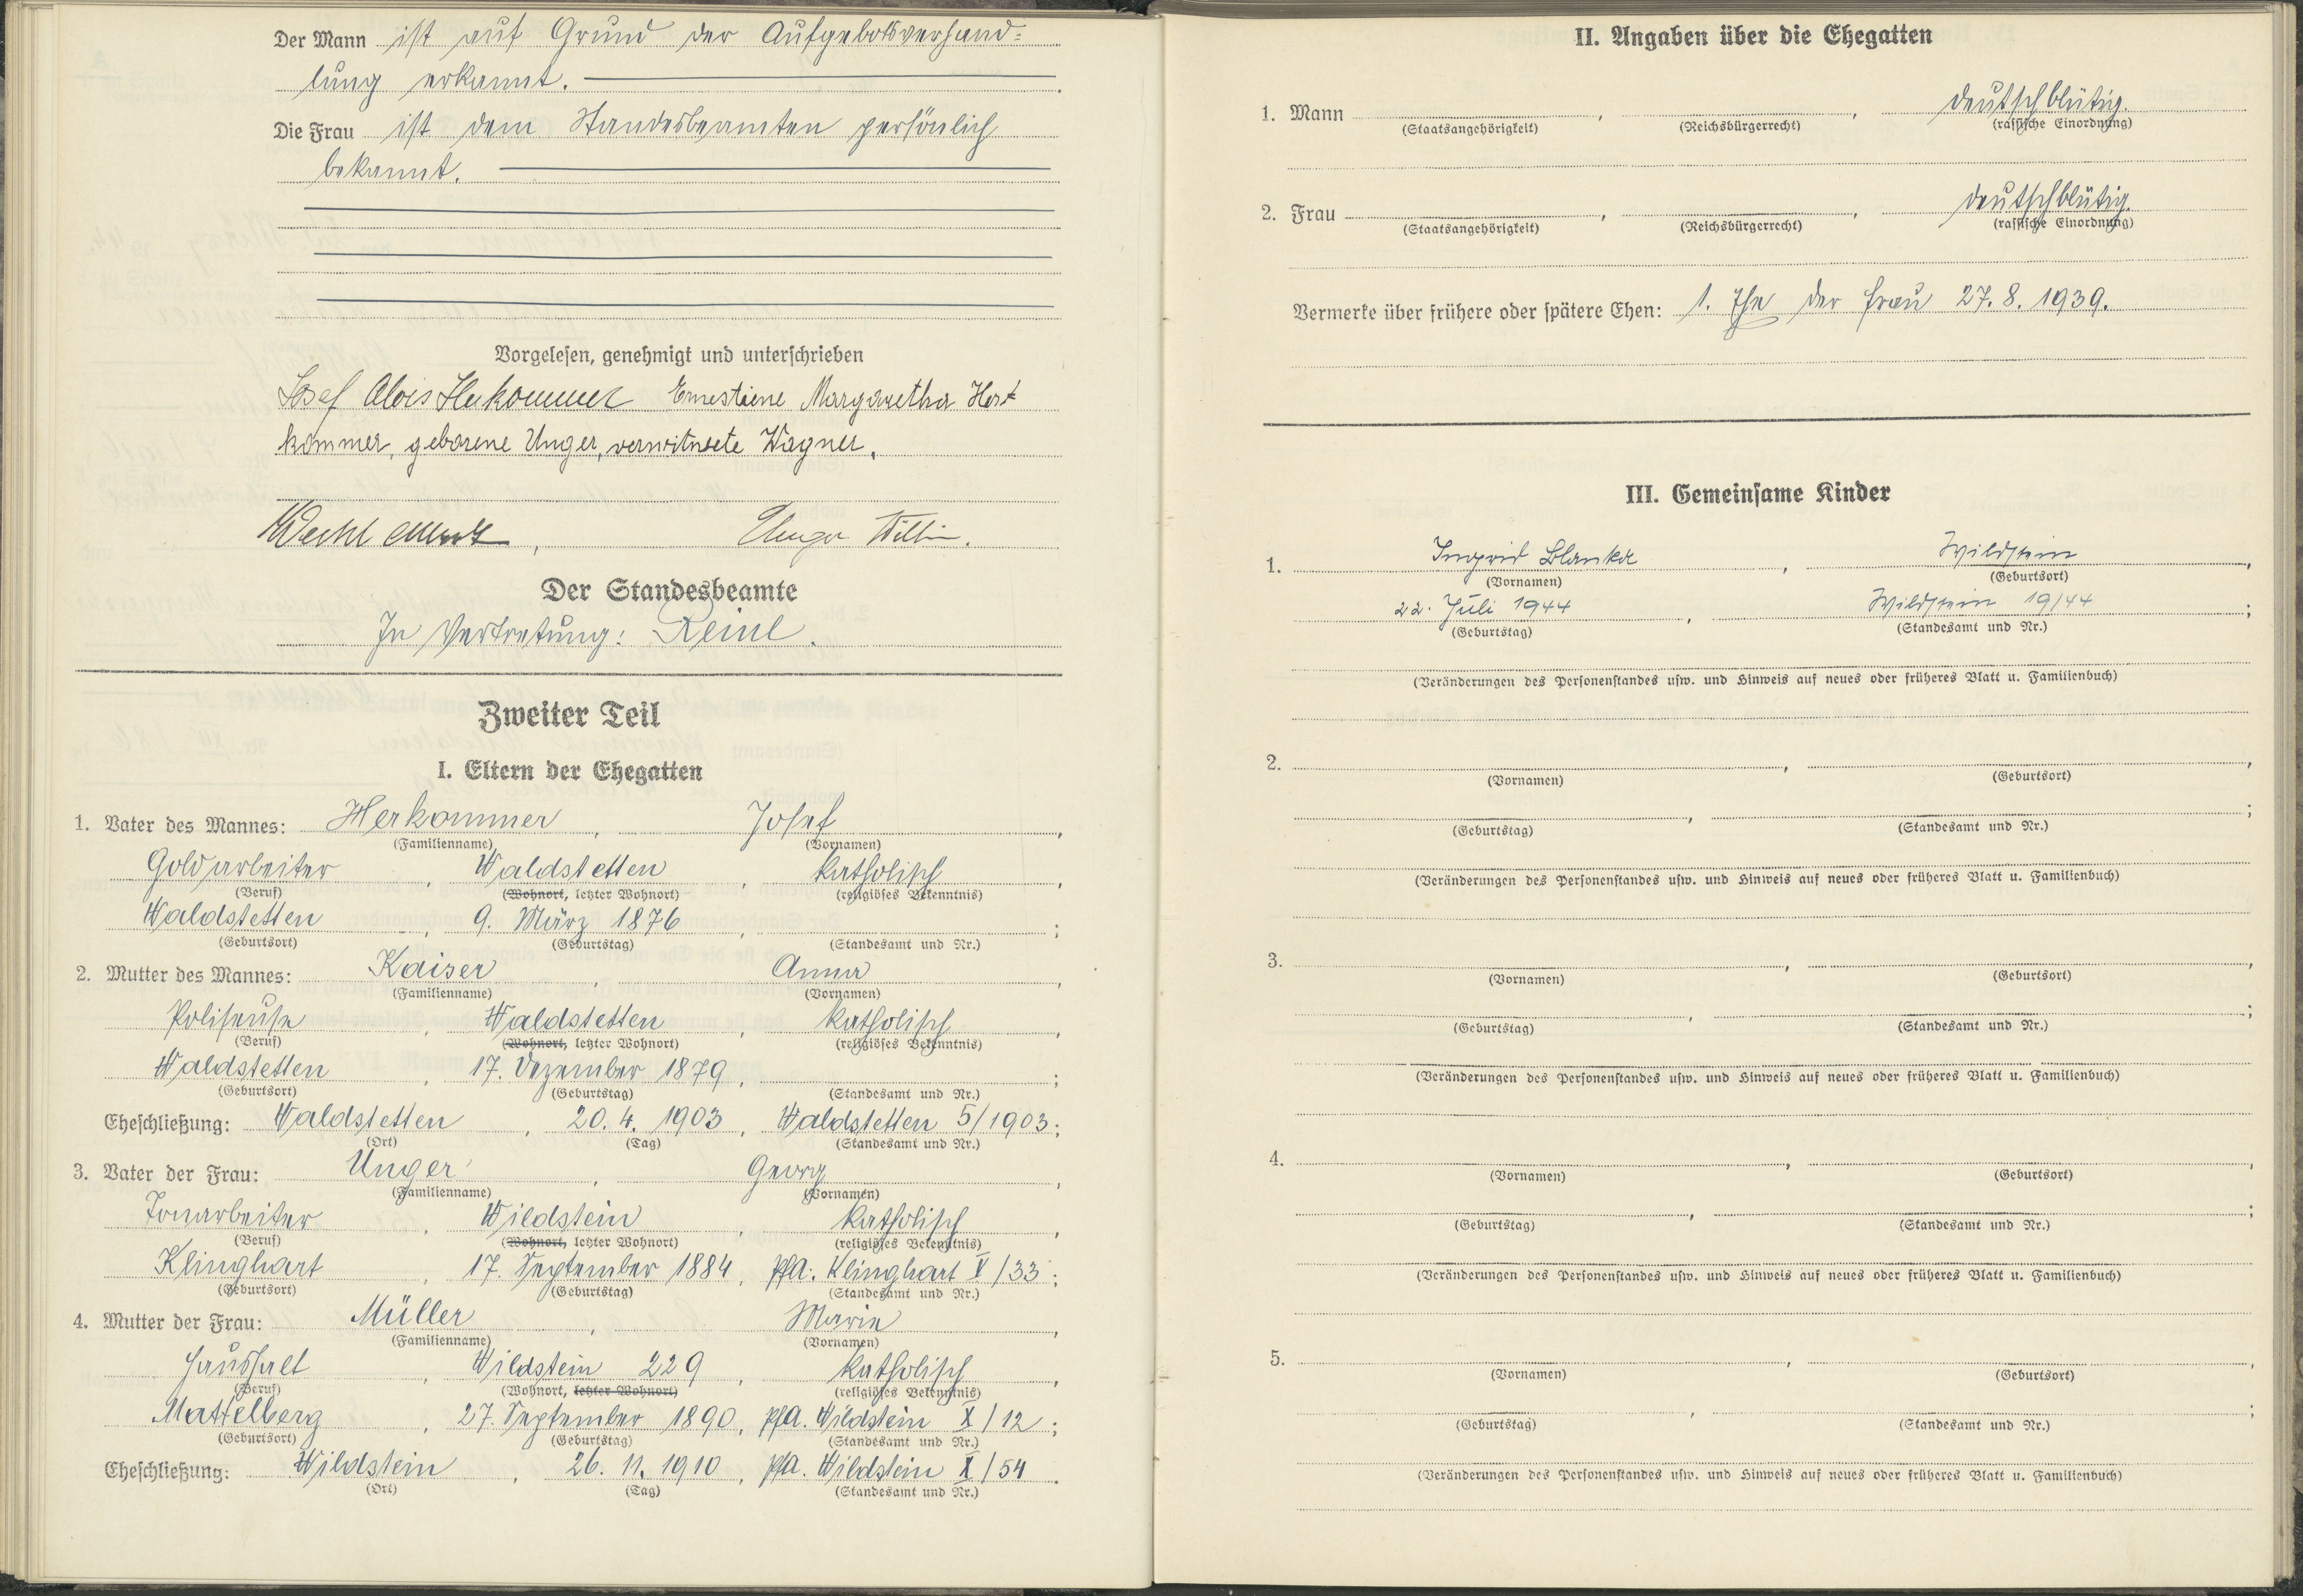 Der Mann ist auf Grund der Aufgebotsverhand=
lung erkannt.
Die Frau ist dem Standesbeamten persönlich
bekannt.
Vorgelesen, genehmigt und unterschrieben
Josef Alois Herkommer Ernestiene Margaretha Her
kommer, geborene Unger, verwitwete Wagner.
Unger
Der Standesbeamte
In Vertretung: Reinl.
Zweiter Teil
I. Eltern der Ehegatten
1. Vater des Mannes: Herkommer, Josef,
(Familienname) (Vornamen)
Goldarbeiter, Waldstetten, katholisch,
(Beruf) (Wohnort, letzter Wohnort) (religiöses Bekenntnis)
Waldstetten, 9. März 1876, ;
(Geburtsort) (Geburtstag) (Standesamt und Nr.)
2. Mutter des Mannes: Kaiser, Anna,
(Familienname) (Vornamen)
Poliseuse, Waldstetten, katholisch,
(Beruf) (Wohnort, letzter Wohnort) (religiöses Bekenntnis)
Waldstetten, 17. Dezember 1879, ;
(Geburtsort) (Geburtstag) (Standesamt und Nr.)
Eheschließung: Waldstetten, 20. 4. 1903, Waldstetten 5/1903;
(Ort) (Tag) (Standesamt und Nr.)
3. Vater der Frau: Unger, Georg,
(Familienname) (Vornamen)
Tonarbeiter, Wildstein, katholisch,
(Beruf) (Wohnort, letzter Wohnort) (religiöses Bekenntnis)
Klinghart, 17. September 1884, Pfa. Klinghart V/33;
(Geburtsort) (Geburtstag) (Standesamt und Nr.)
4. Mutter der Frau: Müller, Marie,
(Familienname) (Vornamen)
Haushalt, Wildstein 229, katholisch,
(Beruf) (Wohnort, letzter Wohnort) (religiöses Bekenntnis)
Mattelberg, 27. September 1890, Pfa. Wildstein X/12;
(Geburtsort) (Geburtstag) (Standesamt und Nr.)
Eheschließung: Wildstein, 26. 11. 1910, Pfa. Wildstein X/54.
(Ort) (Tag) (Standesamt und Nr.)
II. Angaben über die Ehegatten
1. Mann , , deutschblütig.
(Staatsangehörigkeit) (Reichsbürgerrecht) (rassische Einordnung)
2. Frau , , deutschblütig.
(Staatsangehörigkeit) (Reichsbürgerrecht) (rassische Einordnung)
Vermerke über frühere oder spätere Ehen: 1. Ehe der Frau 27. 8. 1939.
III. Gemeinsame Kinder
1. Ingrid Blanka, Wildstein,
(Vornamen) (Geburtsort)
22. Juli 1944, Wildstein 19/44;
(Geburtstag) (Standesamt und Nr.)
(Veränderungen des Personenstandes usw. und Hinweis auf neues oder früheres Blatt u. Familienbuch)
2. , ,
(Vornamen) (Geburtsort)
, ;
(Geburtstag) (Standesamt und Nr.)
(Veränderungen des Personenstandes usw. und Hinweis auf neues oder früheres Blatt u. Familienbuch)
3. , ,
(Vornamen) (Geburtsort)
, ;
(Geburtstag) (Standesamt und Nr.)
(Veränderungen des Personenstandes usw. und Hinweis auf neues oder früheres Blatt u. Familienbuch)
4. , ,
(Vornamen) (Geburtsort)
, ;
(Geburtstag) (Standesamt und Nr.)
(Veränderungen des Personenstandes usw. und Hinweis auf neues oder früheres Blatt u. Familienbuch)
5. , ,
(Vornamen) (Geburtsort)
, ;
(Geburtstag) (Standesamt und Nr.)
(Veränderungen des Personenstandes usw. und Hinweis auf neues oder früheres Blatt u. Familienbuch)